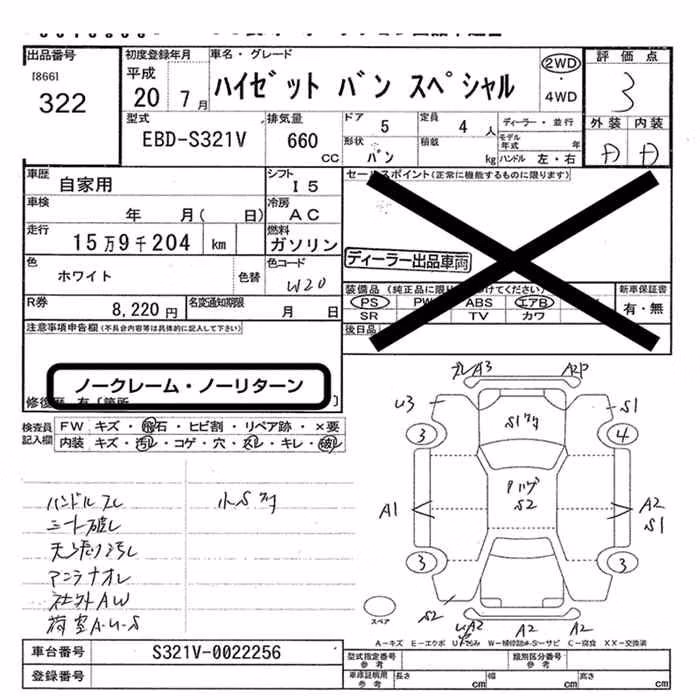 出品番号
[866]
322
初度登録年月
平成
20 7月
車名・グレード
ハイゼット バン スペシャル
2WD
・
4WD
評価点
3
外装 内装
型式
EBD-S321V
排気量
660
CC
ドア 5
定員 4 人
ディーラー・並行
モデル年式 年
形状 バン
積載 kg
ハンドル 左・右
車歴
自家用
シフト
I5
セールスポイント(正常に機能するものに限ります)
車検
年 月( 日)
冷房
AC
走行
15万9千204 km
燃料
ガソリン
ディーラー出品車両
色
ホワイト
色替
色コード
W20
装備品
PS PW ABS エアB
SR TV カワ
新車保証書
有・無
後日品
R券
8,220円
名変通知期限
月 日
注意事項申告欄(不具合内容等は具体的に記入して下さい)
ノークレーム・ノーリターン
検査員
記入欄
FW キズ・飛石・ヒビ割・リペア跡・×要
内装 キズ・汚レ・コゲ・穴・スレ・キレ・破レ
ハンドルスレ
シート破レ
天張り汚レ
アンテナオレ
社外AW
荷室A・U・S
小Sケ
A3
U3
S1
S1
3
4
A1
S2
A2
S1
3
3
S2
A2
A2
A2
スペア
A-キズ E-エクボ
C-腐食 XX-交換済
車台番号
S321V-0022256
登録番号
型式指定番号
参考
類別区分番号
参考
車庫証明用
参考
長さ cm
幅 cm
高さ cm